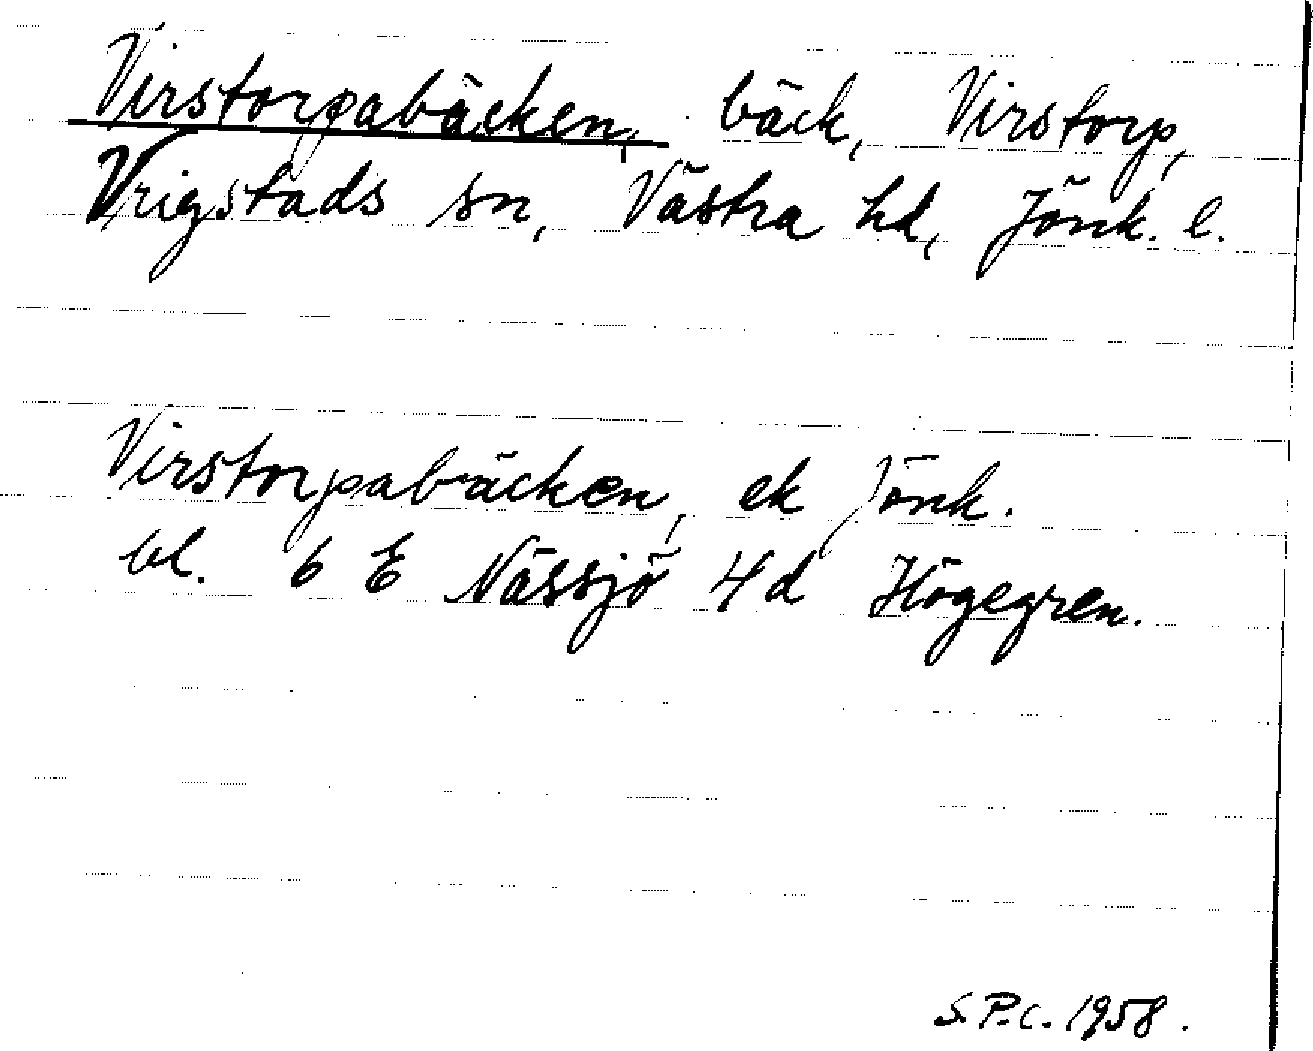 Virstorpabäcken, bäck, Virstorp,
Vrigstads sn, Västra hd, Jönk. l.
Virstorpabäcken, ek Jönk.
bl. 6 E Nässjö 4d Högegren.
S.P.c. 1958.